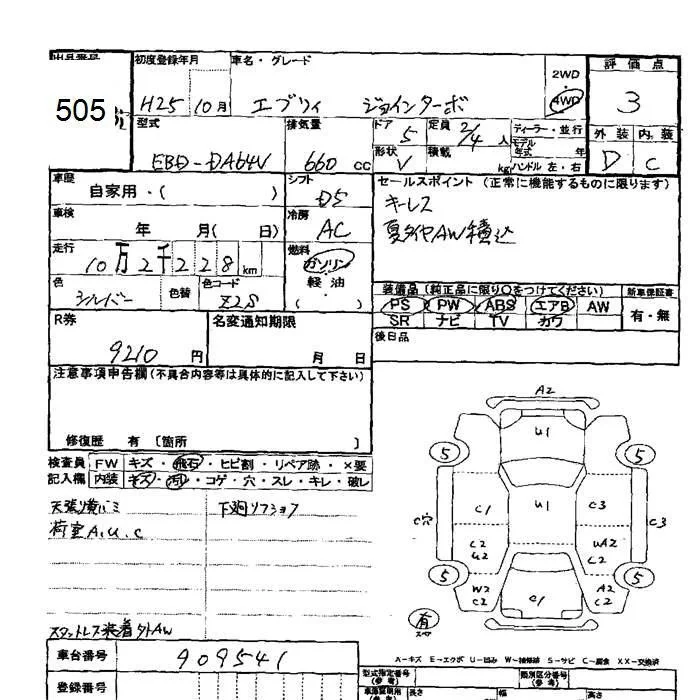 505
初度登録年月 車名・グレード 評価点
H25 10月 エブリィ ジョインターボ 2WD 4WD 3
型式 排気量 ドア 5 定員 2/4 人 ディーラー・並行 外装 内装
EBD-DA64V 660 CC 形状 V 積載 kg モデル年式 年 ハンドル 左・右 D C
車歴 自家用・( ) シフト D5 セールスポイント (正常に機能するものに限ります)
車検 年 月( 日) 冷房 AC キーレス
夏タイヤAW積込
走行 10万2千228km 燃料 ガソリン 軽油 ( )
色 シルバー 色替 色コード Z2S
装備品(純正品に限り○をつけてください) 新車保証書
PS PW ABS エアB AW 有・無
SR ナビ TV カワ
R券 9210円 名変通知期限 月 日
後日品
注意事項申告欄(不具合内容等は具体的に記入して下さい)
修復歴 有 〔箇所 〕
検査員 FW キズ・飛石・ヒビ割・リペア跡・×要
記入欄 内装 キズ・汚れ・コゲ・穴・スレ・キレ・破レ
天張リ黄バミ 下廻リフショク
荷室A.U.C
スタットレス装着外AW
A2
U1
5 5
C穴 C1 U1 C3 C3
C2 U2 UA2 C2
5 5
W2 C2 C1 A2 C2
有
スペア
A-キズ E-エクボ U-凹み W-補修跡 S-サビ C-腐食 XX-交換済
車台番号 909541
登録番号
型式指定番号(参考) 類別区分番号(参考)
長さ 幅 高さ